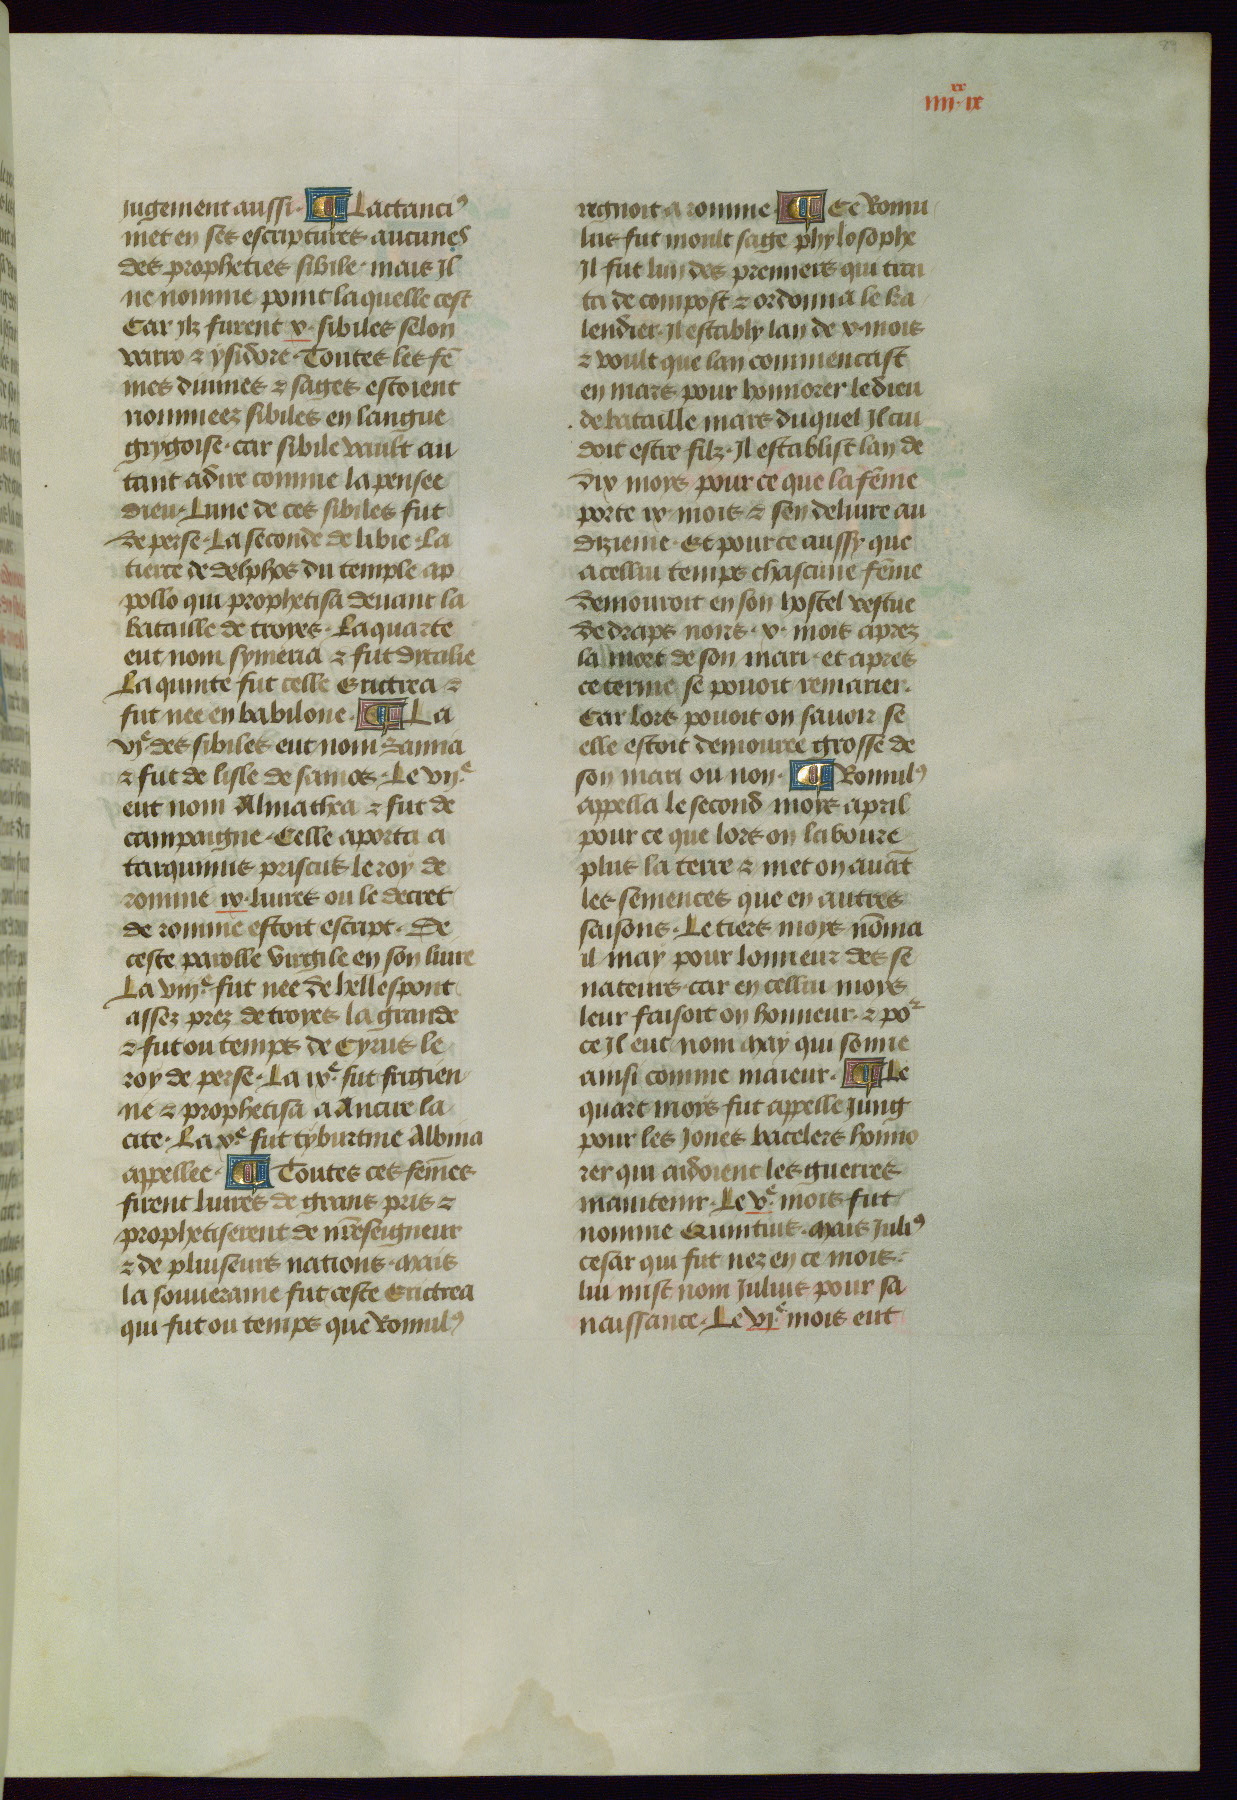 iiii·ix
xx
jugement aussi· ¶ Lactanciꝰ
met en ses escriptures aucunes
des propheties sibile· mais Jl
ne nomme point laquelle cest
Car Jlz furent x· sibiles selon
varro ⁊ ysidore· Toutes les fē
mes diuines ⁊ sages estoient
nommeez sibiles en langue
grygoise· car sibile vault au
tant adire comme la pensee
dieu· Lune de ces sibiles fut
de perse· La seconde de libie· La
tierce de delphos du temple ap
pollo qui prophetisa deuant la
bataille de troyes· La quarte
eut nom symeria ⁊ fut dytalie
La quinte fut celle Erictrea ⁊
fut nee en babilone· ¶ La
vjᵉ des sibiles eut nom Samia
⁊ fut de lisle de samos· Le vijᵉ
eut nom Almathea ⁊ fut de
campaigne· Celle aporta a
tarquinus priscus le roy de
romme ix· liures ou le decret
de romme estoit escript· De
ceste parolle virgile en son liure
La viijᵉ fut nee de hellespont
assez prez de troyes la grande
⁊ fut ou temps de Cyrus le
roy de perse· La ixᵉ fut frigien
ne ⁊ prophetisa a Ancire la
cite· La xᵉ fut tyburtine Albina
appellee· ¶ Toutes ces fem̄es
firent liures de grans pris ⁊
prophetiserent de nr̄eseigneur
⁊ de pluiseurs nations· mais
la souueraine fut ceste Erictrea
qui fut ou temps que Romulꝰ
regnoit a romme· ¶ Ce Romu
lus fut moult sage phylosophe
Jl fut lun des premiers qui trai
ta de compost ⁊ ordonna le ka
lendier· Jl estably lan de x· mois
⁊ voult que lan commencast
en mars pour honnorer le dieu
de bataille mars duquel Jl cui
doit estre filz· Jl establist lan de
dix moys pour ce que la fēme
porte ix mois ⁊ sen deliure au
dizieme· Et pour ce aussy que
a cellui temps chascune fēme
demouroit en son hostel vestue
de draps noirs· x· mois aprez
la mort de son mari· et apres
ce terme se pouoit remarier·
Car lors pouoit on sauoir se
elle estoit demouree grosse de
son mari ou non· ¶ Romulꝰ
appella le second moys april
pour ce que lors on laboure
plus la terre ⁊ met on auāt
les semences que en autres
saisons· Le tiers moys nōma
il may pour lonneur des se
nateurs· car en cellui moys
leur faisoit on honneur· ⁊ poʳ
ce Jl eut nom may qui sonne
ainsi comme maieur· ¶ Le
quart moys fut appelle Jung
pour les Jones bacelers honno
rer qui aidoient les guerres
maintenir· Le vᵉ mois fut
nomme Quintius· mais Juliꝰ
cesar qui fut nez en ce mois·
lui mist nom Julius pour sa
naissance· Le vjᵉ mois eut